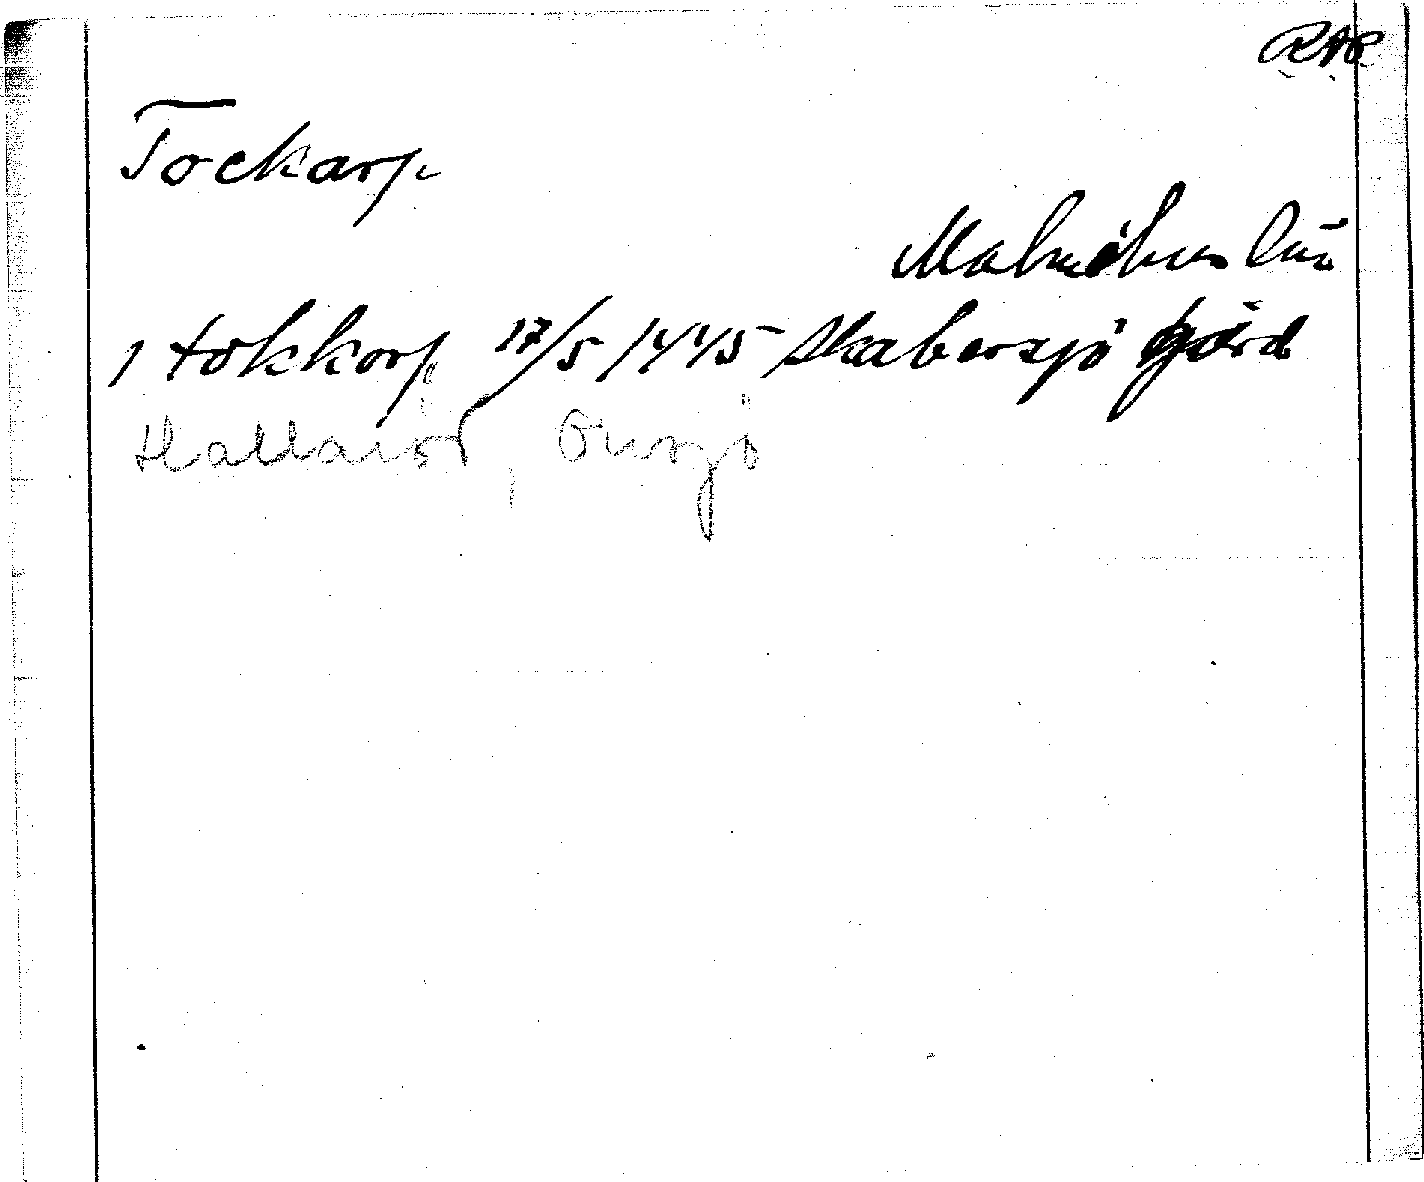 RAP
Tockarp
Malmöhus län
1 tokkorp 17/5 1445 Skabersjö gård
Hallaröd, Onsjö